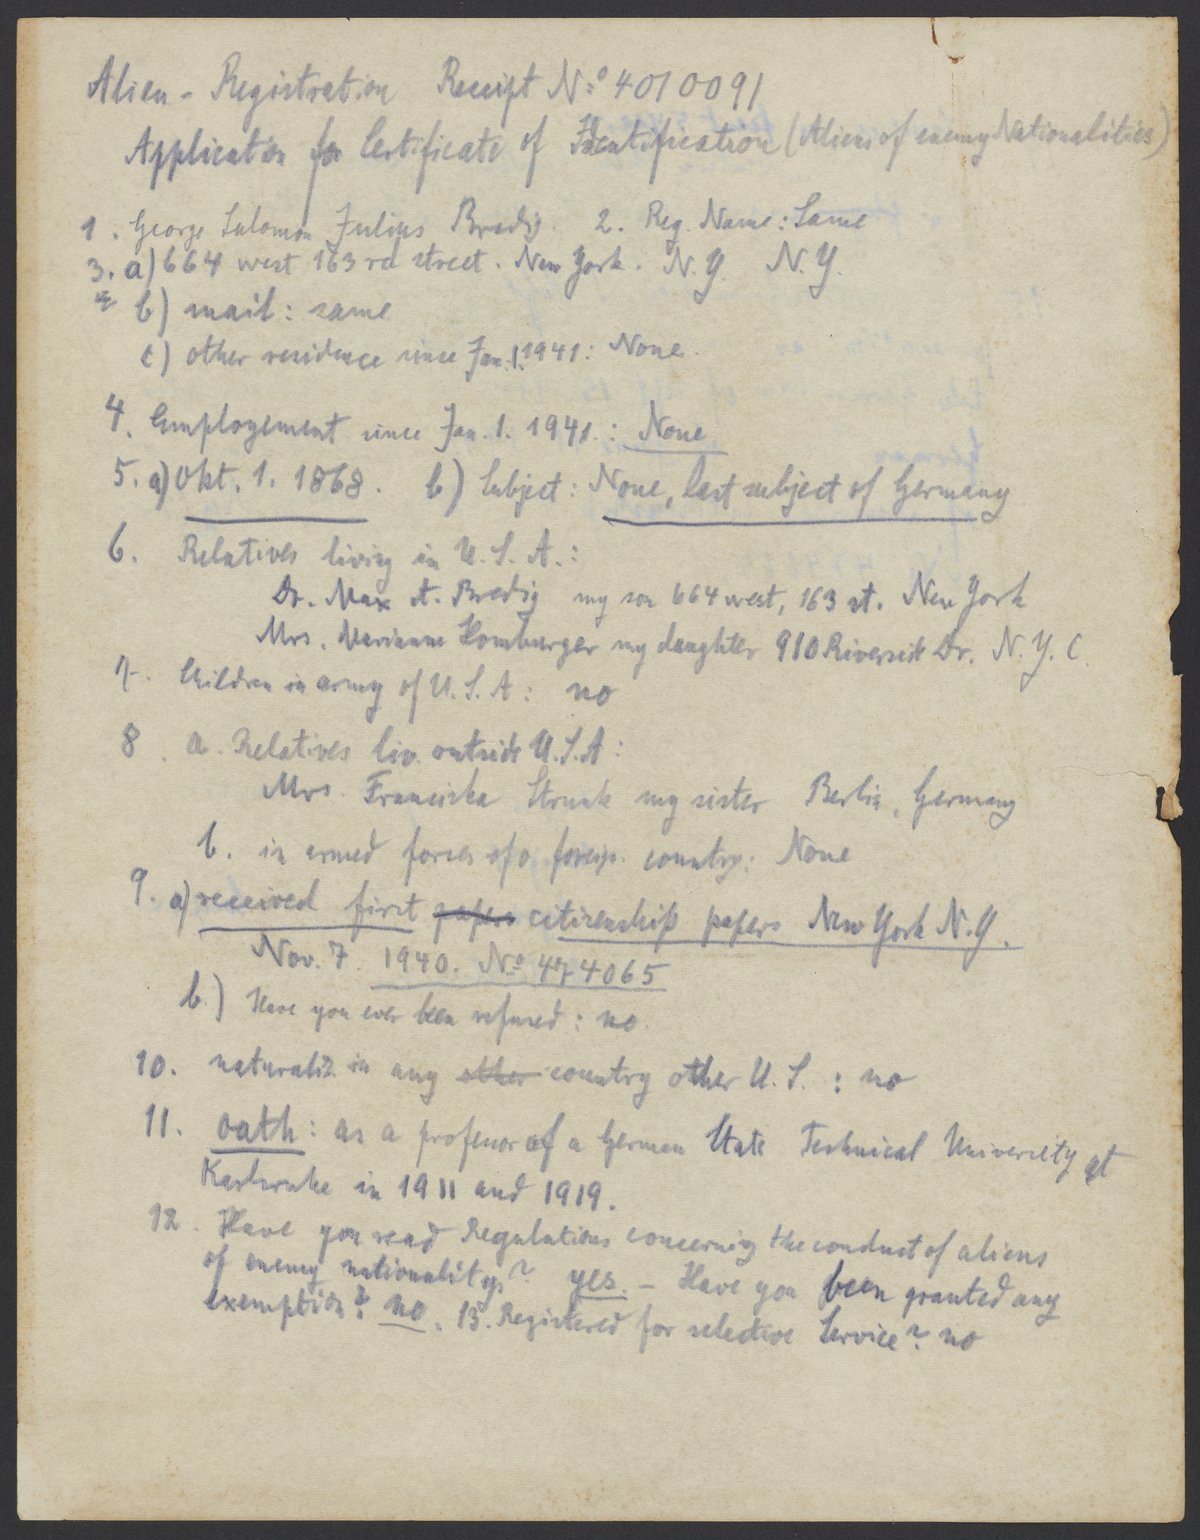 Alien - Registration Receipt Nº 4010091
Application for Certificate of Identification (Aliens of enemy Nationalities)
1. George Salomon Julius Bredig 2. Reg. Name: Same
3. a) 664 west 163rd street. New York. N.Y. N.Y.
b) mail: same
c) other residence since Jan. 1. 1941: None.
4. Employement since Jan. 1. 1941.: None
5. a) Okt. 1. 1868. b) Subject: None, last subject of Germany
6. Relatives living in U.S.A.:
Dr. Max A. Bredig my son 664 west, 163 st. New York
Mrs. Marianne Homburger my daughter 910 Riverside Dr. N.Y.C.
7. Children in army of U.S.A: no
8. a. Relatives liv. outside U.S.A:
Mrs. Franciska Strunk my sister Berlin, Germany
b. in armed forces of a foreign country: None
9. a) received first papers citizenship papers New York N.Y.
Nov. 7. 1940. Nº 474065
b.) Have you ever been refused: no.
10. naturaliz in any other country other U.S.: no
11. oath: as a professor of a German State Technical University at
Karlsruhe in 1911 and 1919.
12. Have you read Regulations concerning the conduct of aliens
of enemy nationality? yes. - Have you been granted any
exemption? no. 13. Registered for selective Service? no